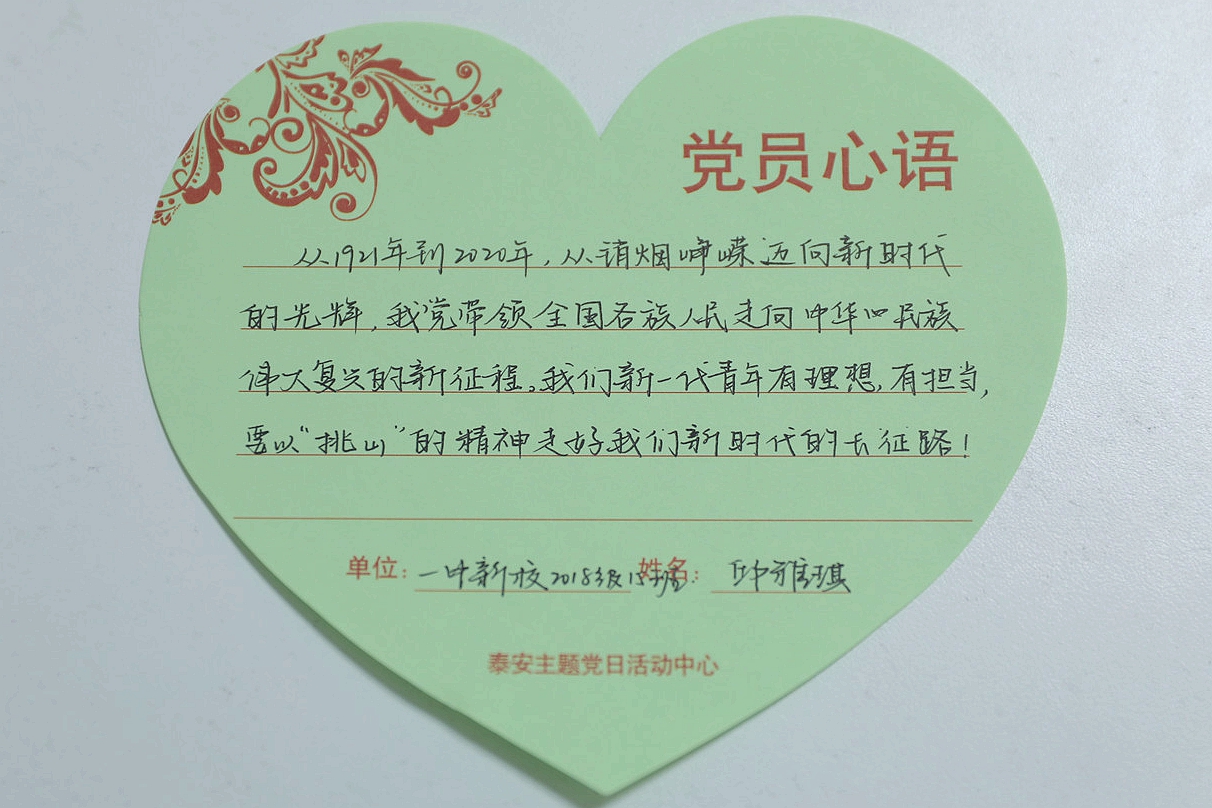 党员心语
从1921年到2020年，从硝烟峥嵘迈向新时代
的光辉，我党带领全国各族人民走向中华民族
伟大复兴的新征程。我们新一代青年有理想，有担当，
要以“挑山”的精神走好我们新时代的长征路！
单位：一中新校2018级15班 姓名：邱雅琪
泰安主题党日活动中心